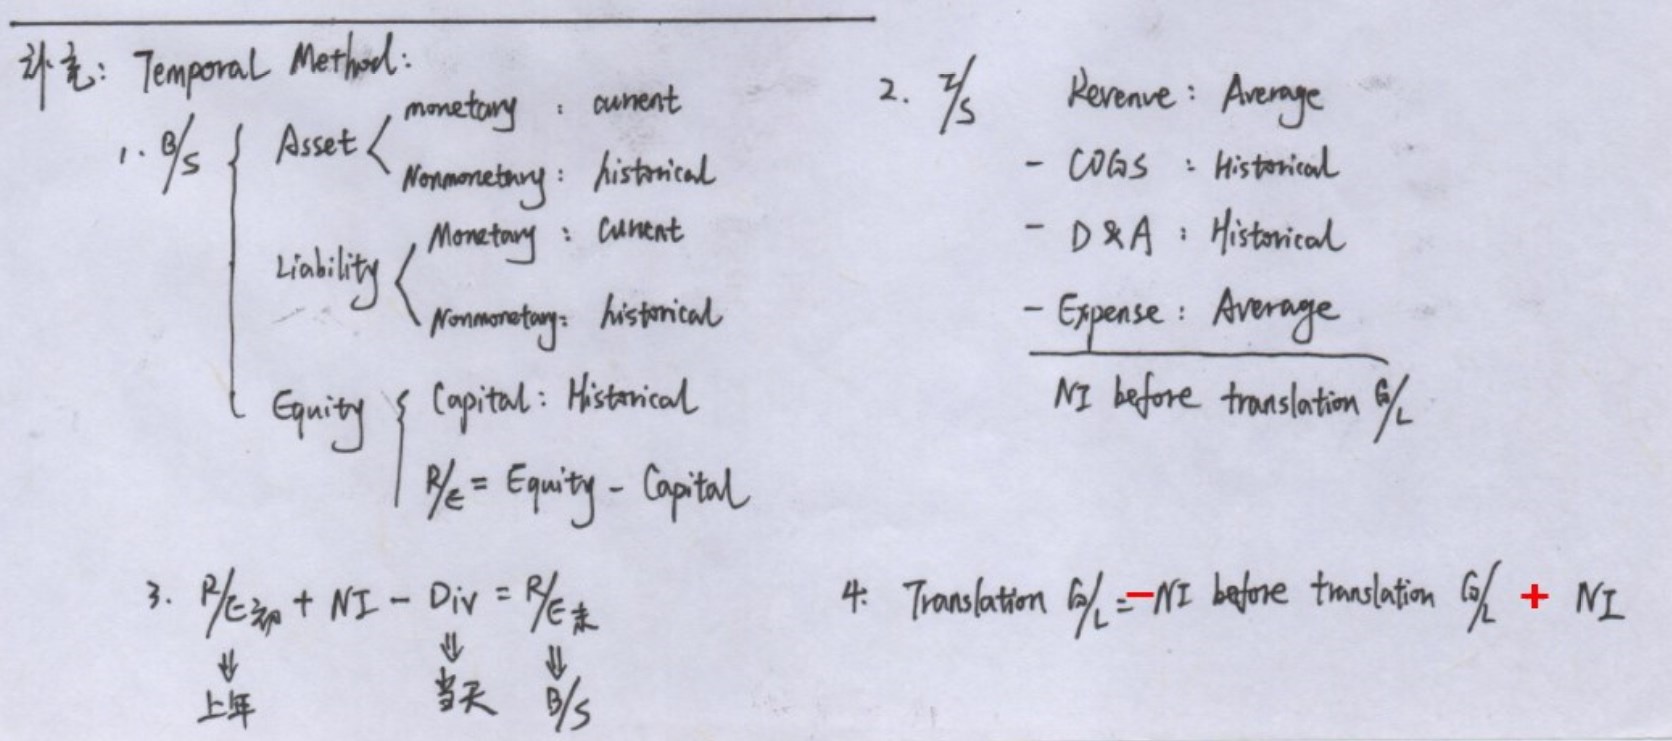 补充: Temporal Method:
1. B/S { Asset < monetary : current
Nonmonetary : historical
Liability < Monetary : current
Nonmonetary: historical
Equity { Capital : Historical
R/E = Equity - Capital
2. I/S Revenue : Average
- COGS : Historical
- D&A : Historical
- Expense : Average
NI before translation G/L
3. R/E初 + NI - Div = R/E末
⇓ ⇓ ⇓
上年 当天 B/S
4. Translation G/L = -NI before translation G/L + NI